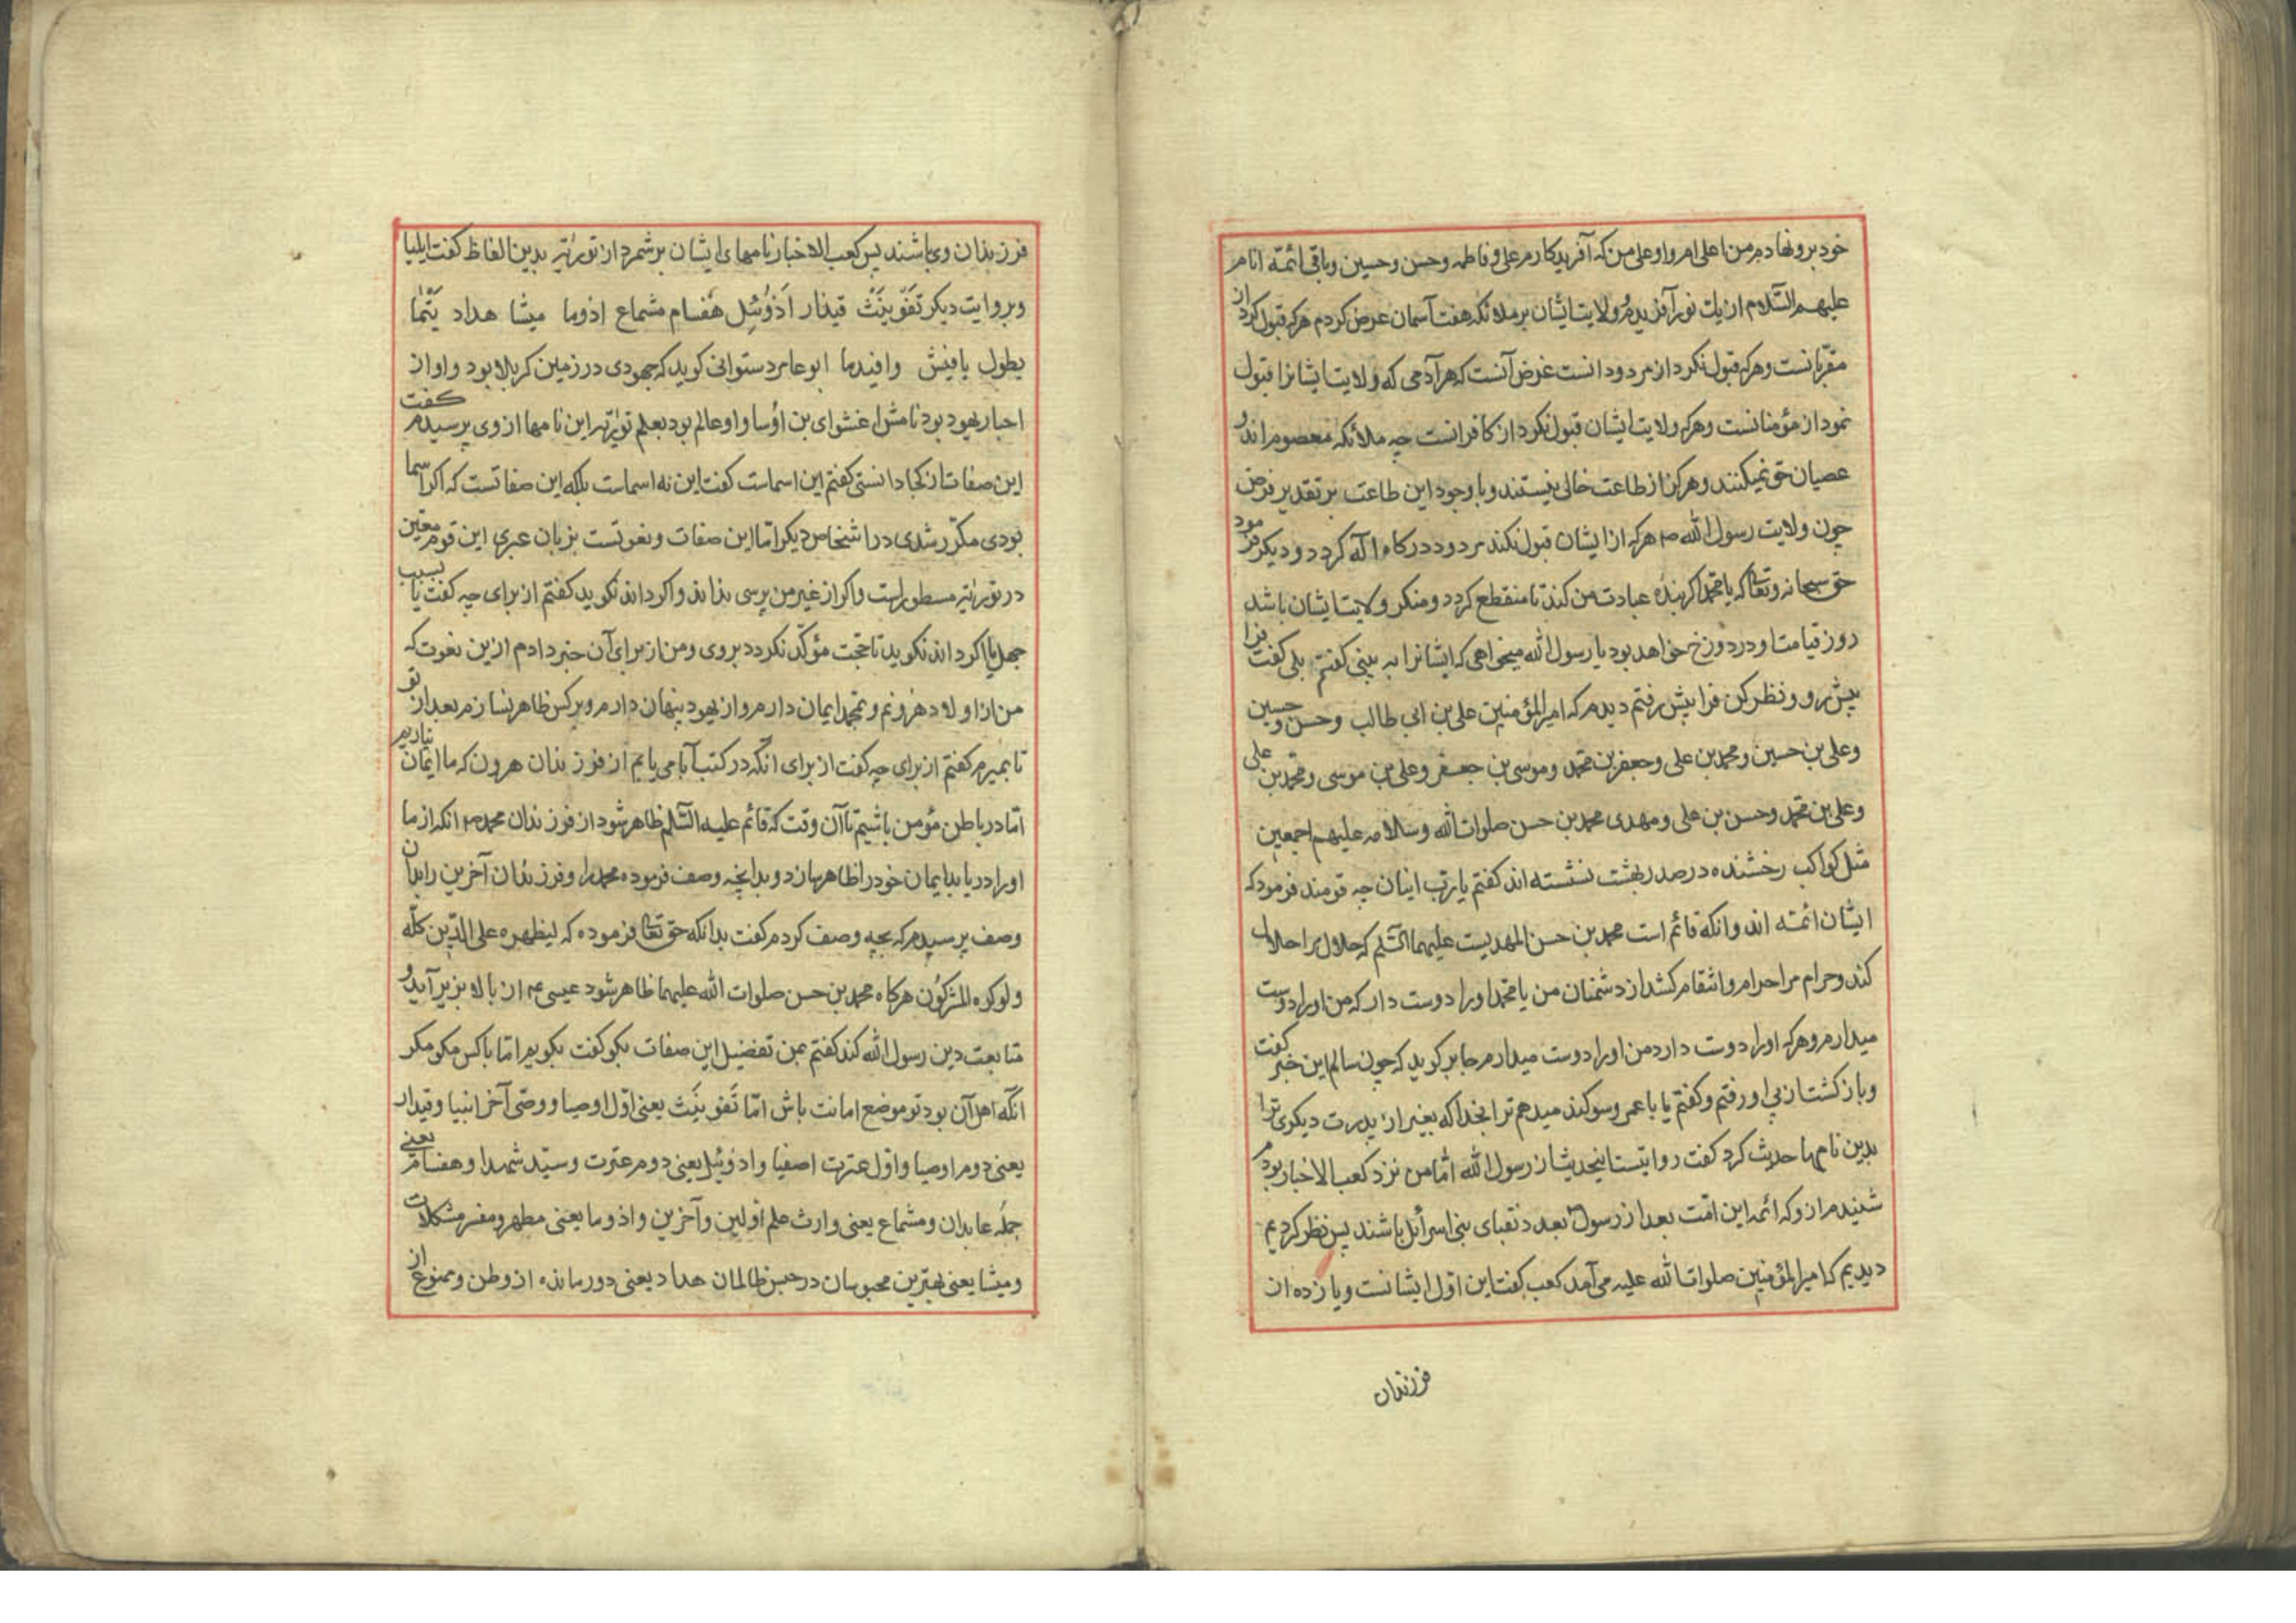 خود برو نهادم من اعلی ام و او علی من که آفریدکارم علی و فاطمه و حسن و حسین و باقی ائمّه انام
علیهم السّلام از یک نور آفریدم و ولایت ایشان بر ملائکه هفت آسمان عرض کردم هرکه قبول کرد از
مقرّبانست و هرکه قبول نکرد از مردودانست غرض آنست که هر آدمی که ولایت ایشانرا قبول
نمود از مؤمنانست و هرکه ولایت ایشان قبول نکرد از کافرانست چه ملائکه معصوم اند و
عصیان حق نمیکنند و هرکز از طاعت خالی نیستند و با وجود این طاعت بر تقدیر فرض
چون ولایت رسول الله ص هرکه از ایشان قبول نکند مردود درکاه اله کردد و دیکر فرمود
حق سبحانه و تعا که یا محمّد اکر بندۀ عبادت من کند تا منقطع کردد و منکر ولایت ایشان باشد
روز قیامت او در دوزخ خواهد بود یا رسول الله میخواهی که ایشانرا به بینی کفتم بلی کفت فرا
پیش رو و نظر کن فرا پیش رفتم دیدم که امیرالمؤمنین علی بن ابی طالب و حسن و حسین
و علی بن حسین و محمد بن علی و جعفر بن محمّد و موسی بن جعفر و علی بن موسی و محمّد بن علی
و علی بن محمّد و حسن بن علی و مهدی محمد بن حسن صلوات الله و سلامه علیهم اجمعین
مثل کواکب رخشنده در صدر بهشت نشسته اند کفتم یا رب اینان چه قومند فرمود که
ایشان ائمّه اند و انکه قائم است محمد بن حسن المهدیست علیهما السّلم که حلال مرا حلال
کند و حرام مرا حرام و انتقام کشد از دشمنان من یا محمّد او را دوست دار که من او را دوست
میدارم و هرکه او را دوست دارد من او را دوست میدارم جابر کوید که چون سالم این خبر کفت
و باز کشت از پی او رفتم و کفتم یا با عمر وسوکند میدهم ترا بخدا که بغیر از پدرت دیکری ترا
بدین نامها حدیث کرد کفت روایتست اینحدیث از رسول الله امّا من نزد کعب الاخبار بودم
شنیدم ازو که ائمه این امّت بعد از رسول بعدد نقبای بنی اسرائل باشند پس نظر کردیم
دیدیم که امیرالمؤمنین صلوات الله علیه می آمد کعب کفت این اوّل ایشانست و یازده از
فرزندان
فرزندان وی باشند پس کعب الاخبار نامهای ایشان برشمرد از توریٰة بدین الفاظ کفت ایلیا
و بروایت دیکر تَقَوْبَیْث قیذار اَذُوئِبل هَفسام مشماع اذوما میشا هداد یَتْمٰا
یطول یافیش وافیدما ابو عامر دستوانی کوید که جهودی در زمین کربلا بود و او از
احبار یهود بود نامش اغشوای بن اؤسا و او عالم بود بعلم توریٰة این نامها از وی پرسیدم کفت
این صفات از کجا دانستی کفتم این اسماست کفت این نه اسماست بلکه این صفاتست که اکر اسما
بودی مکرّر شدی در اشخاص دیکر امّا این صفات و نعوتست بزبان عبری این قوم معیّن
در توریٰة مسطور است و اکر از غیر من پرسی نداند و اکر داند نکوید کفتم از برای چه کفت یا بسبب
جهل یا اکر داند نکوید تا حجّت مؤکّد نکردد بر وی و من از برای آن خبر دادم ازین نعوت که
من از اولاد هرونم و بمحمد ایمان دارم و از یهود پنهان دارم و بر کس ظاهر نسازم بعد از تو
تا بمیرم کفتم از برای چه کفت از برای انکه در کتب آبا می یابم از فرزندان هرون که ما ایمان نیاریم
امّا در باطن مؤمن باشیم تا آن وقت که قائم علیه السّلم ظاهر شود از فرزندان محمد ص انکه از ما
او را دریابد ایمان خود را ظاهر سازد و بدانچه وصف فرموده محمد را و فرزندان آخرین را بدان
وصف پرسیدم که بچه وصف کردم کفت بدانکه حق تعا فرموده که لیظهره علی الدّین کلّه
و لوکره المشرکُون هرکاه محمد بن حسن صلوات الله علیهما ظاهر شود عیسی ع از بالا بزیر آید و
متابعت دین رسول الله کند کفتم بمن تفضیل این صفات بکو کفت بکویم امّا با کس مکو مکر
انکه اهل آن بود تو موضع امانت باش امّا تَقَوبَیْث یعنی اوّل اوصیا و وصّی آخر انبیا و قیدار
یعنی دوم اوصیا و اوّل عترت اصفیا و اذوئبل یعنی دوم عترت و سیّد شهدا و هفسام یعنی
جمله عابدان و مشماع یعنی وارث علم اوّلین و آخرین و اذوما یعنی مطهر و مفسر مشکلات
و میشا یعنی بهترین محبوسان در حبس ظالمان هداد یعنی دور مانده از وطن و ممنوع از